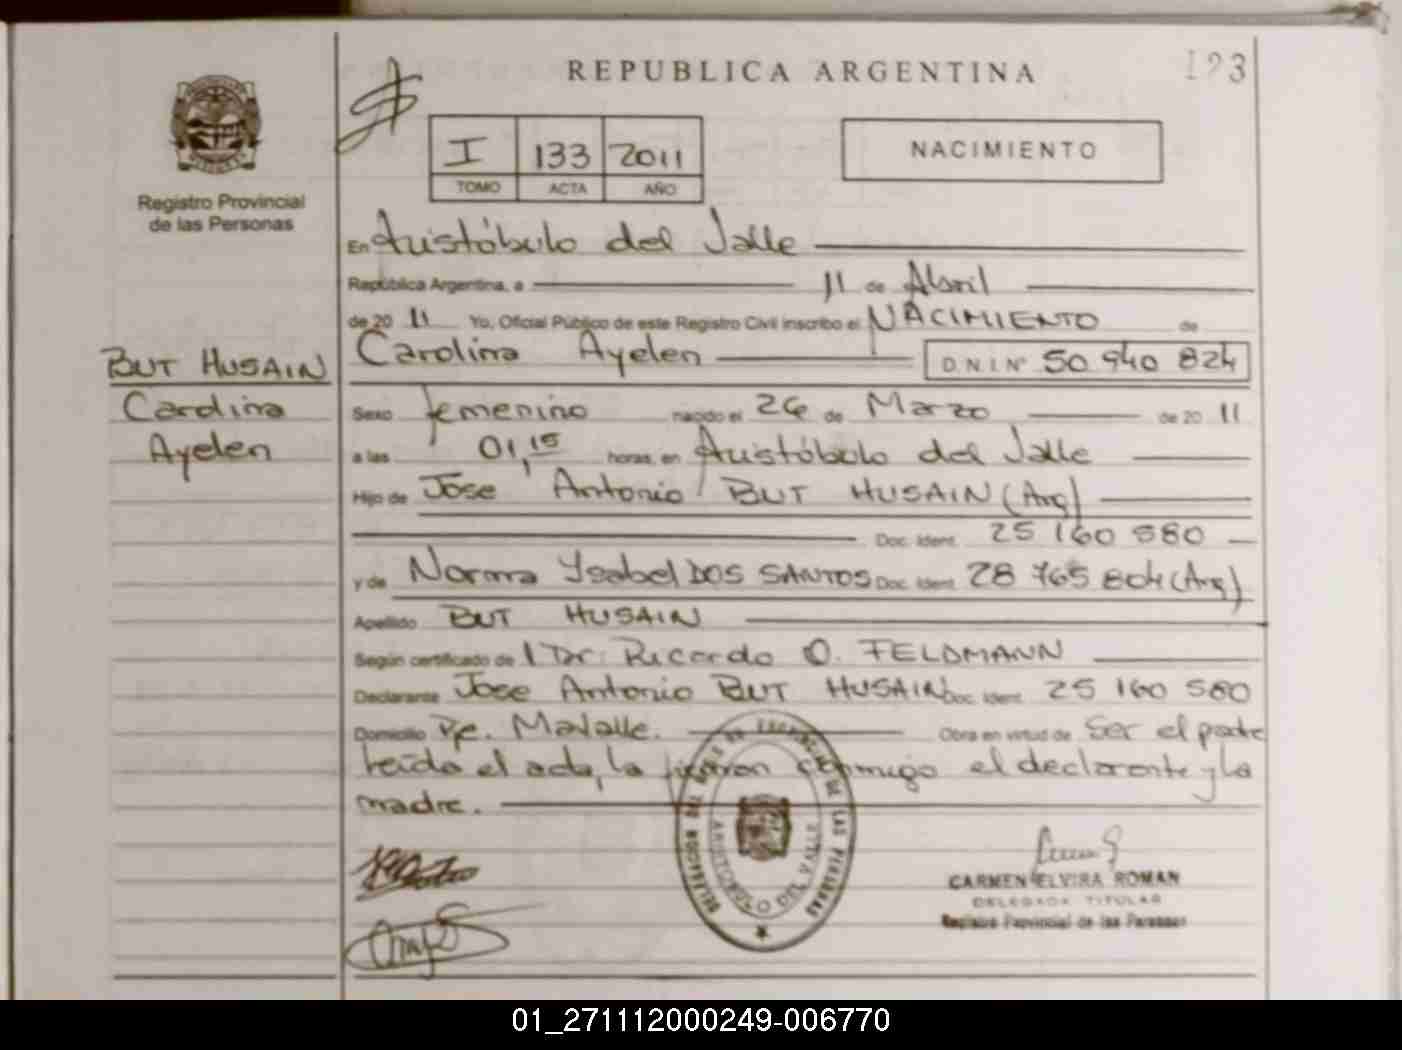 REPUBLICA ARGENTINA
123
Registro Provincial
de las Personas
I 133 2011
TOMO ACTA AÑO
NACIMIENTO
En Aristóbulo del Valle
República Argentina, a 11 de Abril
de 20 11 Yo, Oficial Público de este Registro Civil inscribo el NACIMIENTO de
Carolina Ayelen D.N.I. Nº 50 940 824
BUT HUSAIN
Carolina
Ayelen
Sexo femenino nacido el 26 de Marzo de 20 11
a las 01,15 horas, en Aristóbulo del Valle
Hijo de Jose Antonio BUT HUSAIN (Arg)
Doc. Ident. 25 160 580
y de Norma Ysabel DOS SANTOS Doc. Ident. 28 765 804 (Arg)
Apellido BUT HUSAIN
Según certificado de Dr. Ricardo O. FELDMANN
Declarante Jose Antonio BUT HUSAIN Doc. Ident. 25 160 580
Domicilio Pje. Mavalle. Obra en virtud de Ser el padre
leída el acta, la firman conmigo el declarante y la
madre.
ARISTOBULO DEL VALLE
CARMEN ELVIRA ROMAN
DELEGADA TITULAR
Registro Provincial de las Personas
01_271112000249-006770